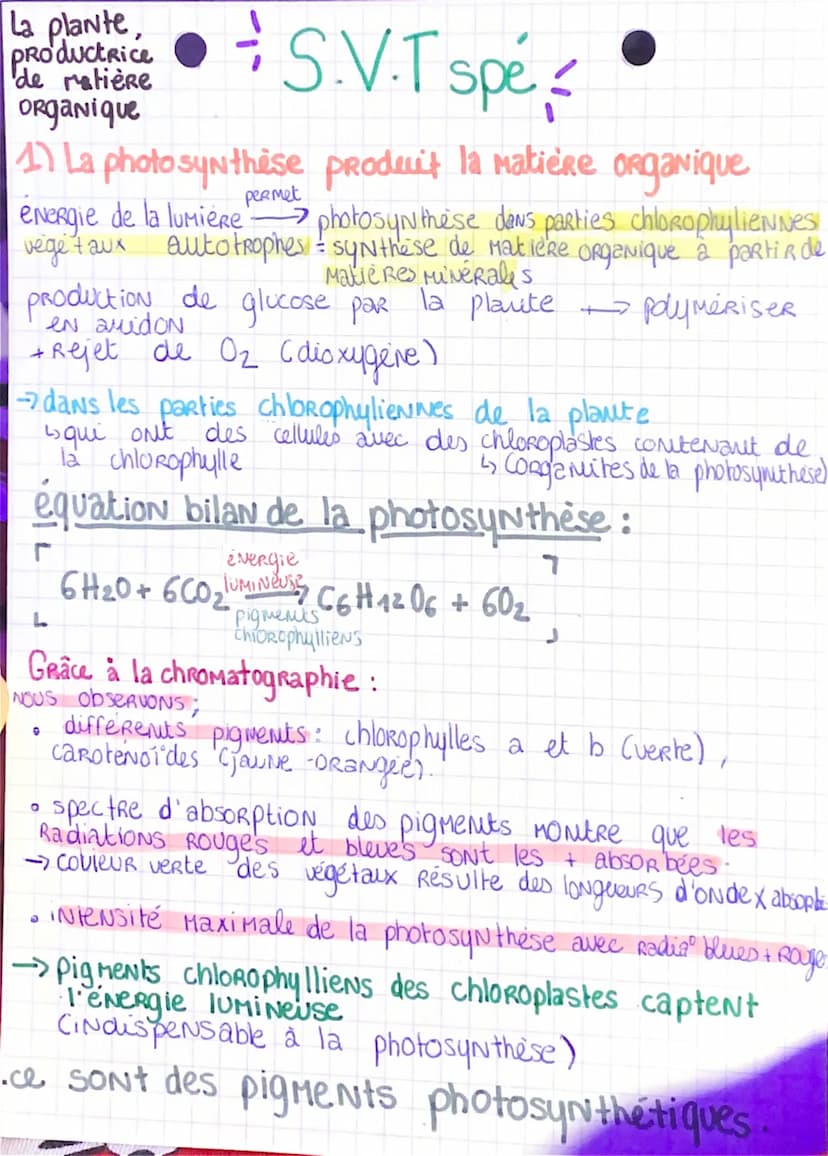 La plante,
productrice
de matière
organique
S.V.T spé
1) La photosynthèse produit la matière organique
permet
énergie de la lumière → photosynthèse dans parties chlorophyliennes
végétaux autotrophes = synthèse de matière organique à partir de
matières minérales
production de glucose par la plante → polymériser
en amidon
+ rejet de O2 (dioxygène)
→ dans les parties chlorophyliennes de la plante
↳ qui ont des cellules avec des chloroplastes contenant de
la chlorophylle
↳ (organites de la photosynthèse)
équation bilan de la photosynthèse :
énergie
lumineuse
6H2O + 6CO2 → C6H12O6 + 6O2
pigments
chlorophylliens
Grâce à la chromatographie :
nous observons ;
• différents pigments : chlorophylles a et b (verte),
caroténoïdes (jaune-orangée).
• spectre d'absorption des pigments montre que les
radiations rouges et bleues sont les + absorbées.
→ couleur verte des végétaux résulte des longueurs d'onde x
• intensité maximale de la photosynthèse avec radia° blues + rouge
→ pigments chlorophylliens des chloroplastes captent
l'énergie lumineuse
(indispensable à la photosynthèse)
.ce sont des pigments photosynthétiques.